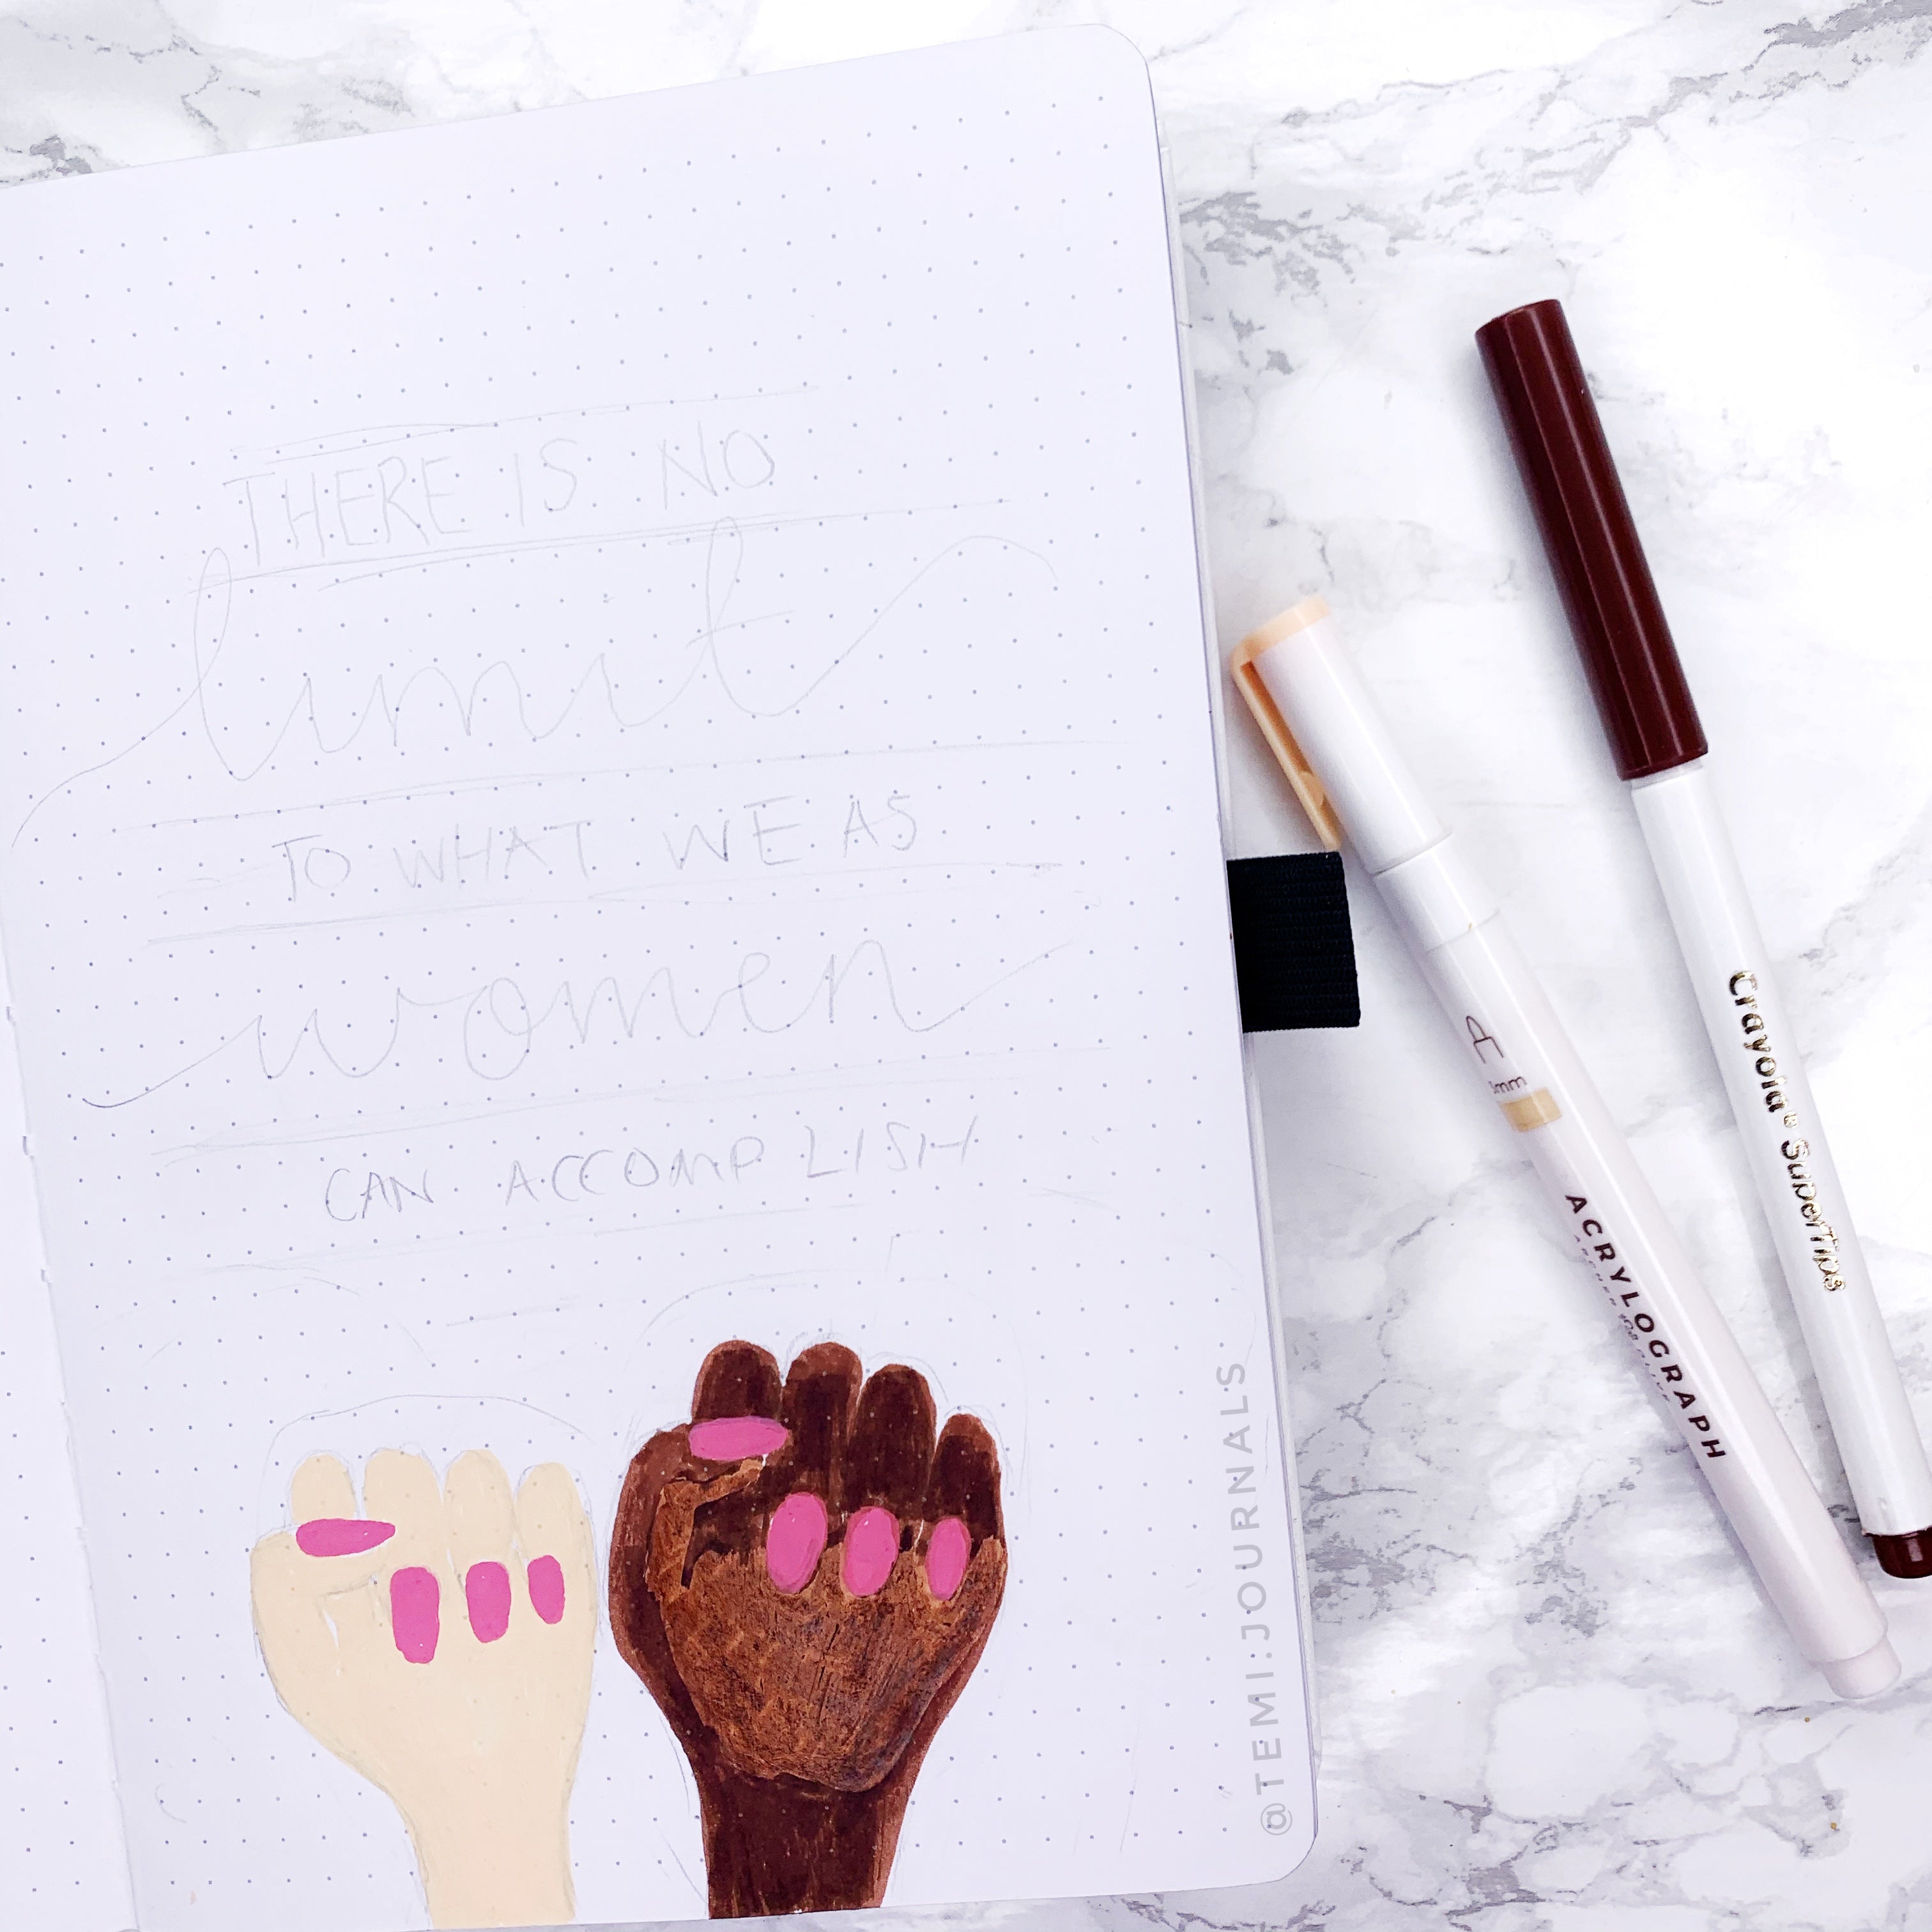 THERE IS NO
limit
TO WHAT WE AS
women
CAN ACCOMPLISH
@TEMI.JOURNALS
ACRYLOGRAPH
Crayola® SuperTips